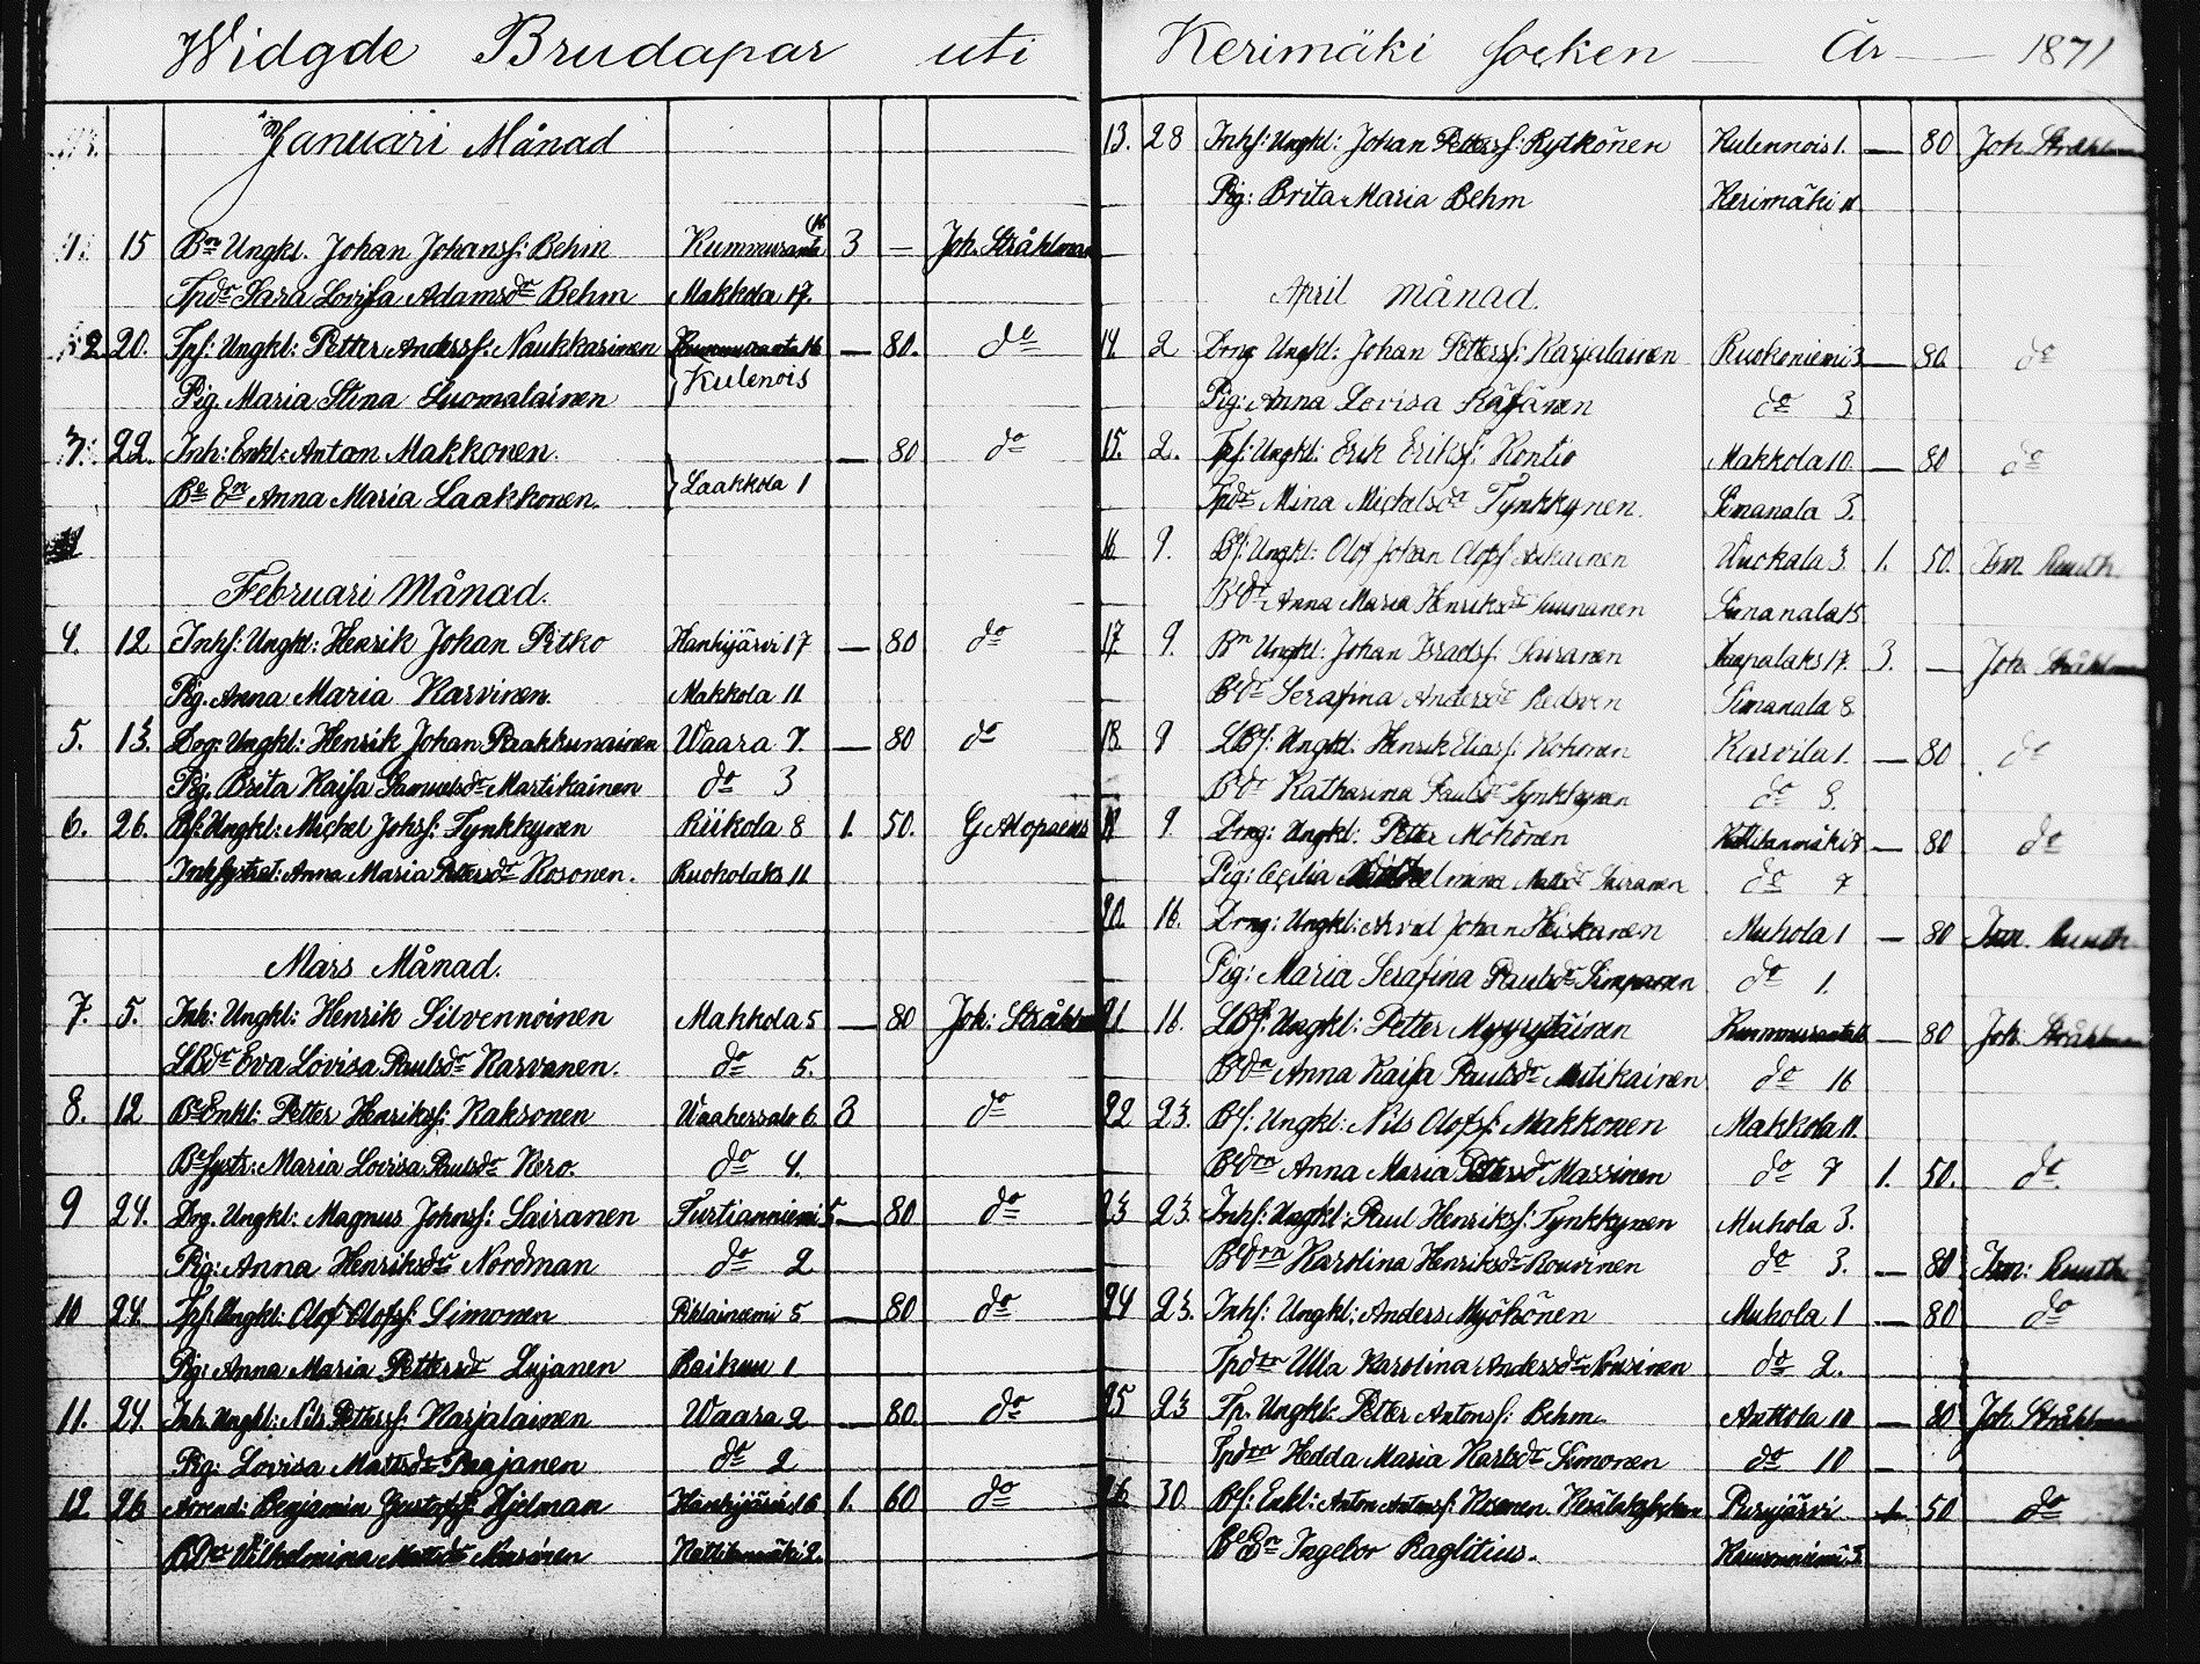 Widgde Brudapar uti Kerimäki socken — År — 1871
Januari Månad
1. 15 Bn Ungkl. Johan Johanss: Behm Kummuranta 16 3 — Joh. Stråhlman
Tpdr Sara Lovisa Adamsdr Behm Makkola 17.
2 20. Tps: Ungkl: Petter Anderss: Naukkarinen Kummuranta 16 — 80. do
Pig. Maria Stina Luomalainen Kulenois
3. 22. Inh: Enkl: Anton Makkonen. — 80 do
Be En Anna Maria Laakkonen. Laakkola 1
Februari Månad.
4. 12 Inhs: Ungkl: Henrik Johan Pitko Hankijärvi 17 — 80 do
Pig. Anna Maria Karvinen. Makkola 11
5. 13. Drg: Ungkl: Henrik Johan Paakkunainen Waara 7. — 80 do
Pig. Brita Kajsa Samuelsdr Martikainen do 3
6. 26. Bs: Ungkl: Michel Johss: Tynkkynen Riikola 8 1. 50. G Alopaeus
Inhsystrat: Anna Maria Pettersdr Kosonen. Ruokolaks 11
Mars Månad.
7. 5. Inh: Ungkl: Henrik Silvennoinen Makkola 5 — 80 Joh: Stråhlman
LBdr Eva Lovisa Paulsdr Karvanen. do 5.
8. 12 Be Enkl: Petter Henrikss: Kaksonen Waahersalo 6. 3 do
Be systr: Maria Lovisa Paulsdr Nero. do 4.
9 24. Drg. Ungkl: Magnus Johnss: Sairanen Turtianniemi 5 — 80 do
Pig: Anna Henriksdr Nordman do 2
10 24. Tps: Ungkl: Olof Olofss: Simonen Pihlainiemi 5 — 80 do
Pig: Anna Maria Pettersdr Lujanen Raikuu 1
11. 24. Inh. Ungkl: Nils Petterss: Karjalainen Waara 2 — 80. do
Pig: Lovisa Mattsdr Paajanen do 2
12 26 Arrend: Benjamin Gustafss: Hjelman Hankijärvi 16 1. 60 do
BDr Vilhelmina Mattsdr Nousinen Kattilanmäki 2.
13. 28 Inhs: Ungkl: Johan Petterss: Rytkönen Kulennois 1. — 80 Joh Stråhlman
Pig: Brita Maria Behm Kerimäki 11
April Månad.
14. 2 Drng Ungkl: Johan Petterss: Karjalainen Ruokoniemi 3 — 80. do
Pig: Anna Lovisa Räsänen do 3.
15. 2. Tps: Ungkl: Erik Erikss: Kontio Makkola 10. — 80 do
Tpdr Mina Michelsdr Tynkkynen. Simanala 3.
16 9. Bs: Ungkl: Olof Johan Olofss Uuokala 3. 1. 50.
Bdr Anna Maria Henriksdr Simanala 15
17 9. Bn Ungkl: Johan Israelss: Sairanen 17. 3. — Joh. Stråhlman
Bdr Serafina Andersdr Redsven Simanala 8.
18. 9 LBs: Ungkl: Henrik Eliass: Kohonen Karvila 1. — 80 do
Bdr Katharina Paulsdr Tynkkynen do 8.
19 9 Drng: Ungkl: Petter Möhönen Kattilanmäki — 80 do
Pig: Cecilia Vilhelmina Mattsdr Sairanen do 7
20. 16. Drng: Ungkl: Arvid Johan Heiskanen Muhola 1 — 80
Pig: Maria Serafina Paulsdr Simpanen do 1.
21 16. LBs: Ungkl: Petter Myyryläinen Kummuranta 16 — 80 Joh Stråhlman
Bdr Anna Kajsa Paulsdr Mutikainen do 16
22 23. Bs: Ungkl: Nils Olofss: Makkonen Makkola 11.
Bdrn Anna Maria Pettersdr Massinen do 7 1. 50. do
23 23. Inhs: Ungkl: Paul Henrikss: Tynkkynen Muhola 3.
Bdrn Karolina Henriksdr Rouvinen do 3. — 80
24 23. Inhs: Ungkl: Anders Myöhönen Muhola 1 — 80 do
Tpdrn Ulla Karolina Andersdr Nousinen do 2.
25 23 Tp. Ungkl: Petter Antonss: Behm Anttola 10 — 80 Joh Stråhlman
Tpdrn Hedda Maria Karlsdr Simonen do 10
26 30. Bs: Enkl: Anton Antonss: Kosonen. Puryjärvi 1. 50 do
Be Dr Ingebor Raglitius.